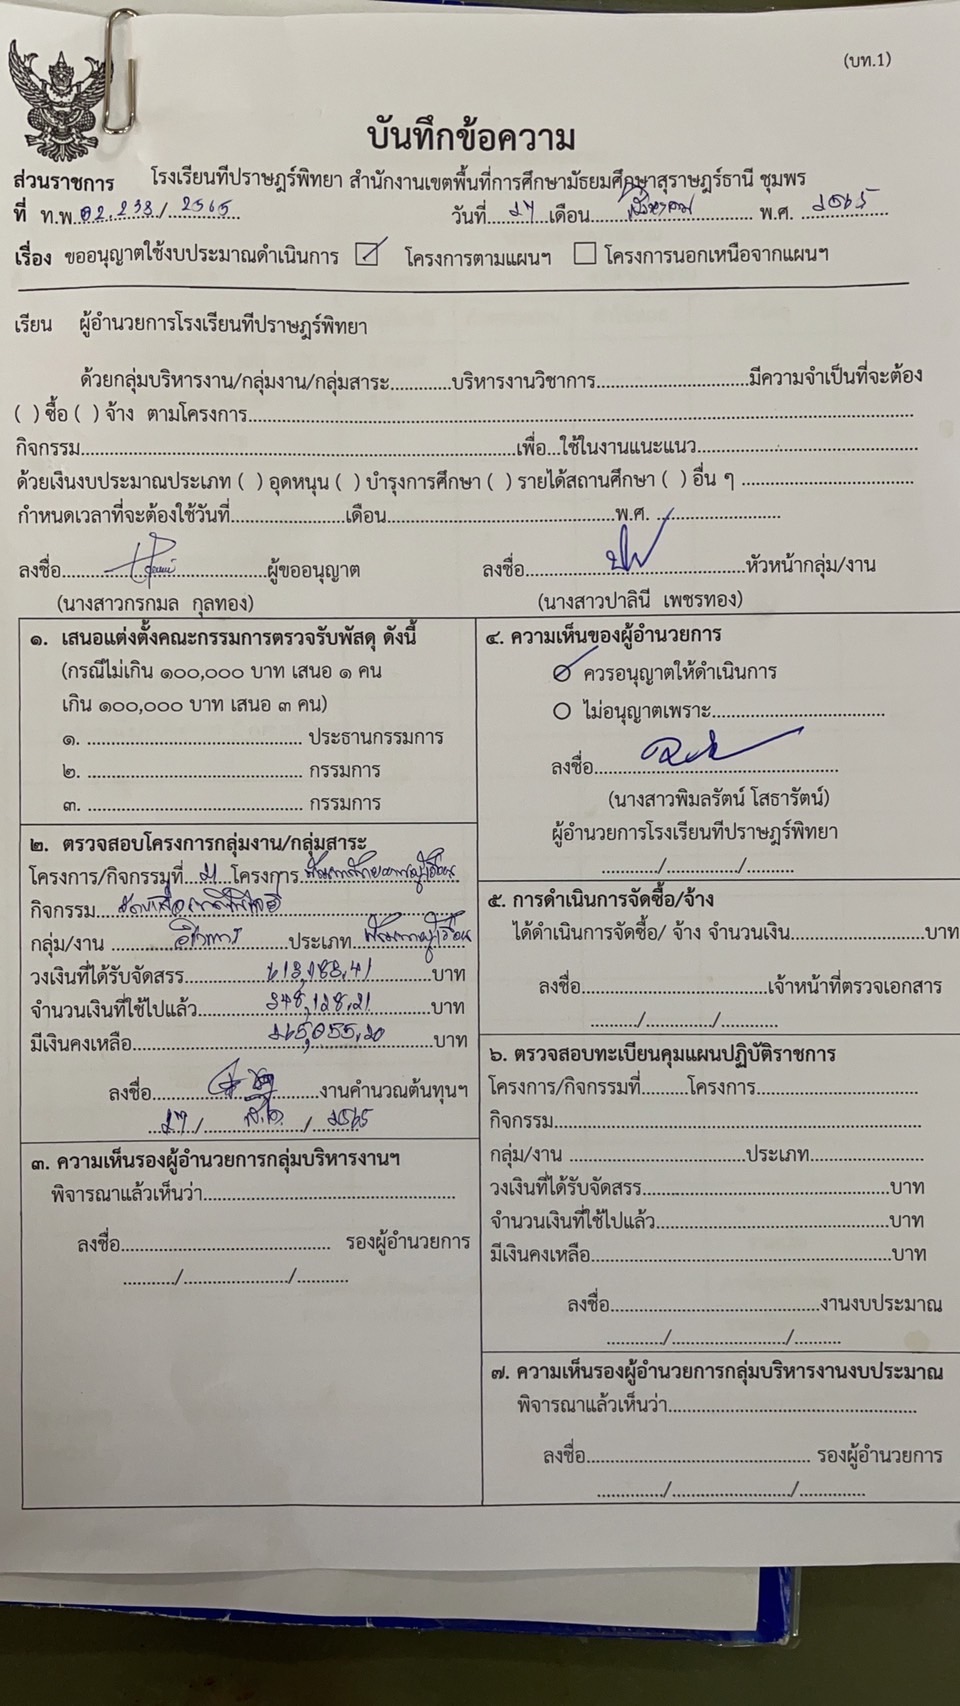 (บท.1)
บันทึกข้อความ
ส่วนราชการ โรงเรียนทีปราษฎร์พิทยา สำนักงานเขตพื้นที่การศึกษามัธยมศึกษาสุราษฎร์ธานี ชุมพร
ที่ ท.พ.02.233/2565 วันที่ ๒๗ เดือน สิงหาคม พ.ศ. ๒๕๖๕
เรื่อง ขออนุญาตใช้งบประมาณดำเนินการ ☑ โครงการตามแผนฯ ☐ โครงการนอกเหนือจากแผนฯ
เรียน ผู้อำนวยการโรงเรียนทีปราษฎร์พิทยา
ด้วยกลุ่มบริหารงาน/กลุ่มงาน/กลุ่มสาระ............บริหารงานวิชาการ..............................มีความจำเป็นที่จะต้อง
( ) ซื้อ ( ) จ้าง ตามโครงการ....................
กิจกรรม....................เพื่อ...ใช้ในงานแนะแนว....................
ด้วยเงินงบประมาณประเภท ( ) อุดหนุน ( ) บำรุงการศึกษา ( ) รายได้สถานศึกษา ( ) อื่น ๆ ....................
กำหนดเวลาที่จะต้องใช้วันที่....................เดือน....................พ.ศ. ....................
ลงชื่อ....................ผู้ขออนุญาต ลงชื่อ....................หัวหน้ากลุ่ม/งาน
(นางสาวกรกมล กุลทอง) (นางสาวปาลินี เพชรทอง)
๑. เสนอแต่งตั้งคณะกรรมการตรวจรับพัสดุ ดังนี้
(กรณีไม่เกิน ๑๐๐,๐๐๐ บาท เสนอ ๑ คน
เกิน ๑๐๐,๐๐๐ บาท เสนอ ๓ คน)
๑. .................... ประธานกรรมการ
๒. .................... กรรมการ
๓. .................... กรรมการ
๒. ตรวจสอบโครงการกลุ่มงาน/กลุ่มสาระ
โครงการ/กิจกรรมที่ ๒ โครงการ
กิจกรรม
กลุ่ม/งาน วิชาการ ประเภท พัฒนาผู้เรียน
วงเงินที่ได้รับจัดสรร 613,183.41 บาท
จำนวนเงินที่ใช้ไปแล้ว 348,128.21 บาท
มีเงินคงเหลือ ๒65,055.20 บาท
ลงชื่อ....................งานคำนวณต้นทุนฯ
๒๗ / ส.ค. / ๒๕๖๕
๓. ความเห็นรองผู้อำนวยการกลุ่มบริหารงานฯ
พิจารณาแล้วเห็นว่า....................
ลงชื่อ.................... รองผู้อำนวยการ
........../..................../...........
๔. ความเห็นของผู้อำนวยการ
ควรอนุญาตให้ดำเนินการ
ไม่อนุญาตเพราะ....................
ลงชื่อ....................
(นางสาวพิมลรัตน์ โสธารัตน์)
ผู้อำนวยการโรงเรียนทีปราษฎร์พิทยา
.........../............../..........
๕. การดำเนินการจัดซื้อ/จ้าง
ได้ดำเนินการจัดซื้อ/ จ้าง จำนวนเงิน....................บาท
ลงชื่อ....................เจ้าหน้าที่ตรวจเอกสาร
........./............/...........
๖. ตรวจสอบทะเบียนคุมแผนปฏิบัติราชการ
โครงการ/กิจกรรมที่.........โครงการ....................
กิจกรรม....................
กลุ่ม/งาน ....................ประเภท....................
วงเงินที่ได้รับจัดสรร....................บาท
จำนวนเงินที่ใช้ไปแล้ว....................บาท
มีเงินคงเหลือ....................บาท
ลงชื่อ....................งานงบประมาณ
.........../..................../..........
๗. ความเห็นรองผู้อำนวยการกลุ่มบริหารงานงบประมาณ
พิจารณาแล้วเห็นว่า....................
ลงชื่อ.................... รองผู้อำนวยการ
............./..................../.............